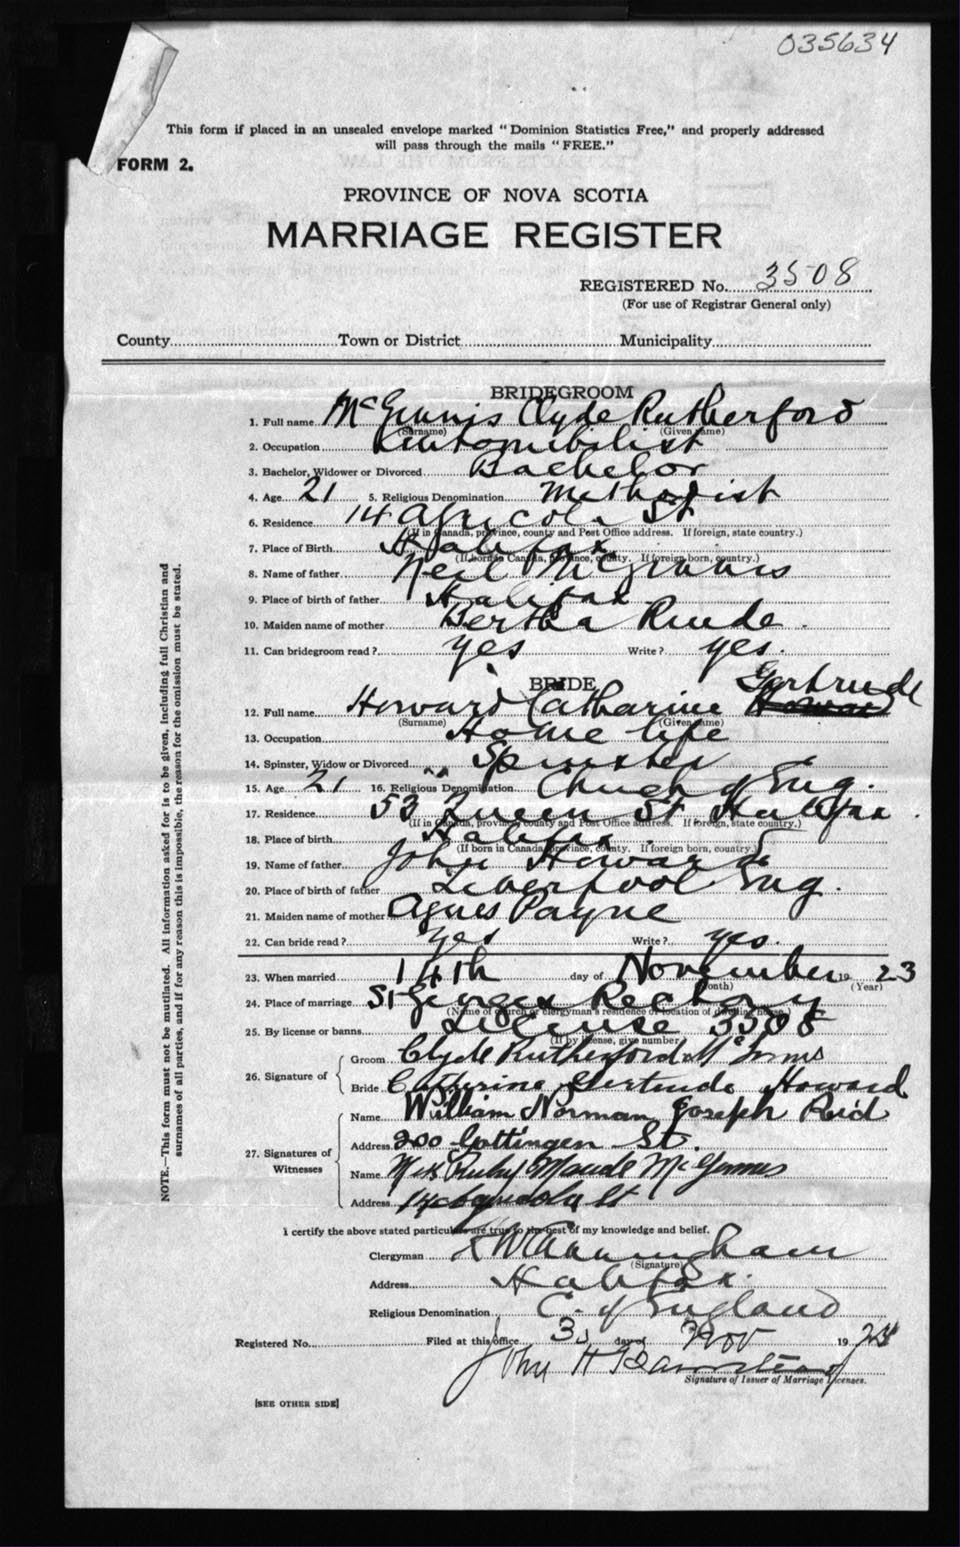 035634
This form if placed in an unsealed envelope marked "Dominion Statistics Free," and properly addressed
will pass through the mails "FREE."
FORM 2.
PROVINCE OF NOVA SCOTIA
MARRIAGE REGISTER
REGISTERED No. 3508
(For use of Registrar General only)
County Town or District Municipality
BRIDEGROOM
1. Full name McGinnis Clyde Rutherford
(Surname) (Given name)
2. Occupation Automobilist
3. Bachelor, Widower or Divorced Bachelor
4. Age 21 5. Religious Denomination Methodist
6. Residence 14 Agricola St
(If in Canada, province, county and Post Office address. If foreign, state country.)
7. Place of Birth Halifax
(If born in Canada, province, county. If foreign born, country.)
8. Name of father Neil McGinnis
9. Place of birth of father Halifax
10. Maiden name of mother Bertha Rude
11. Can bridegroom read? yes Write? yes.
BRIDE
Gertrude
12. Full name Howard Catharine Howard
(Surname) (Given name)
13. Occupation Home life
14. Spinster, Widow or Divorced Spinster
15. Age 21 16. Religious Denomination Church of Eng.
17. Residence 53 Queen St Halifax
(If in Canada, province, county and Post Office address. If foreign, state country.)
18. Place of birth Halifax
(If born in Canada, province, county. If foreign born, country.)
19. Name of father John Howard
20. Place of birth of father Liverpool Eng.
21. Maiden name of mother Agnes Payne
22. Can bride read? yes Write? yes.
23. When married 14th day of November 1923
(Month) (Year)
24. Place of marriage St Georges Rectory
(Name of church or clergyman's residence or location of dwelling house.)
25. By license or banns License 3508
(If by license, give number)
26. Signature of
Groom Clyde Rutherford McInnis
Bride Catherine Gertrude Howard
27. Signatures of Witnesses
Name William Norman Joseph Reid
Address 200 Gottingen St.
Name Ruby Maude McGinnis
Address 14 Agricola St
I certify the above stated particulars are true to the best of my knowledge and belief.
Clergyman Cunningham
(Signature)
Address Halifax.
Religious Denomination C. of England
Registered No. Filed at this office day of Nov 19
John H Barnstead
Signature of Issuer of Marriage Licenses.
[SEE OTHER SIDE]
NOTE.—This form must not be mutilated. All information asked for is to be given, including full Christian and
surnames of all parties, and if for any reason this is impossible, the reason for the omission must be stated.